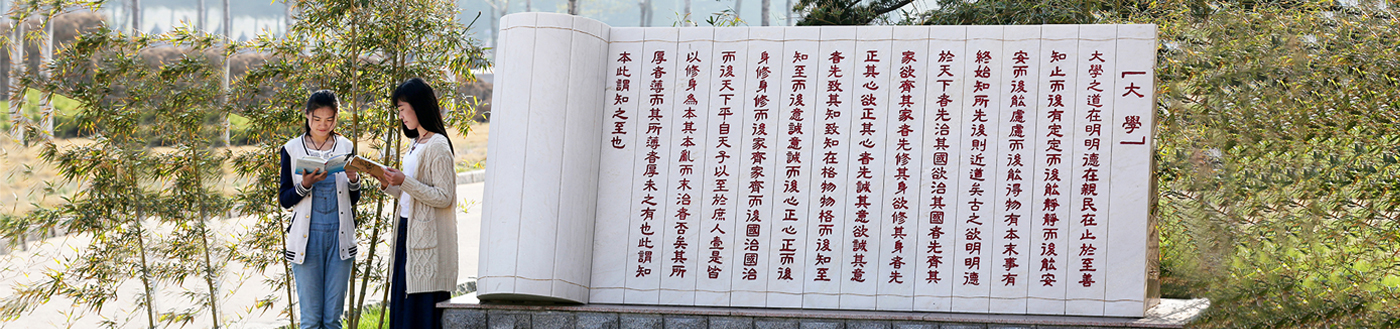 「大學」
大學之道在明明德在親民在止於至善
知止而後有定定而後能靜靜而後能安
安而後能慮慮而後能得物有本末事有
終始知所先後則近道矣古之欲明明德
於天下者先治其國欲治其國者先齊其
家欲齊其家者先修其身欲修其身者先
正其心欲正其心者先誠其意欲誠其意
者先致其知致知在格物物格而後知至
知至而後意誠意誠而後心正心正而後
身修身修而後家齊家齊而後國治國治
而後天下平自天子以至於庶人壹是皆
以修身為本其本亂而末治者否矣其所
厚者薄而其所薄者厚未之有也此謂知
本此謂知之至也